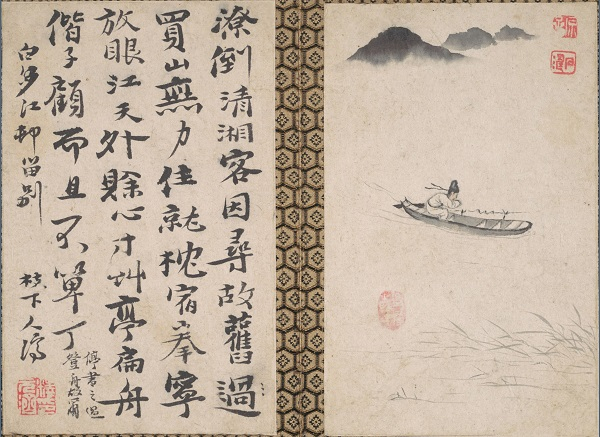 潦倒清湘客因尋故舊過
買山無力住就枕宿拳寧
放眼江天外賖心寸艸亭扁舟
偕子顧而且不單丁
登舟
白沙江邨留別
枝下人濟